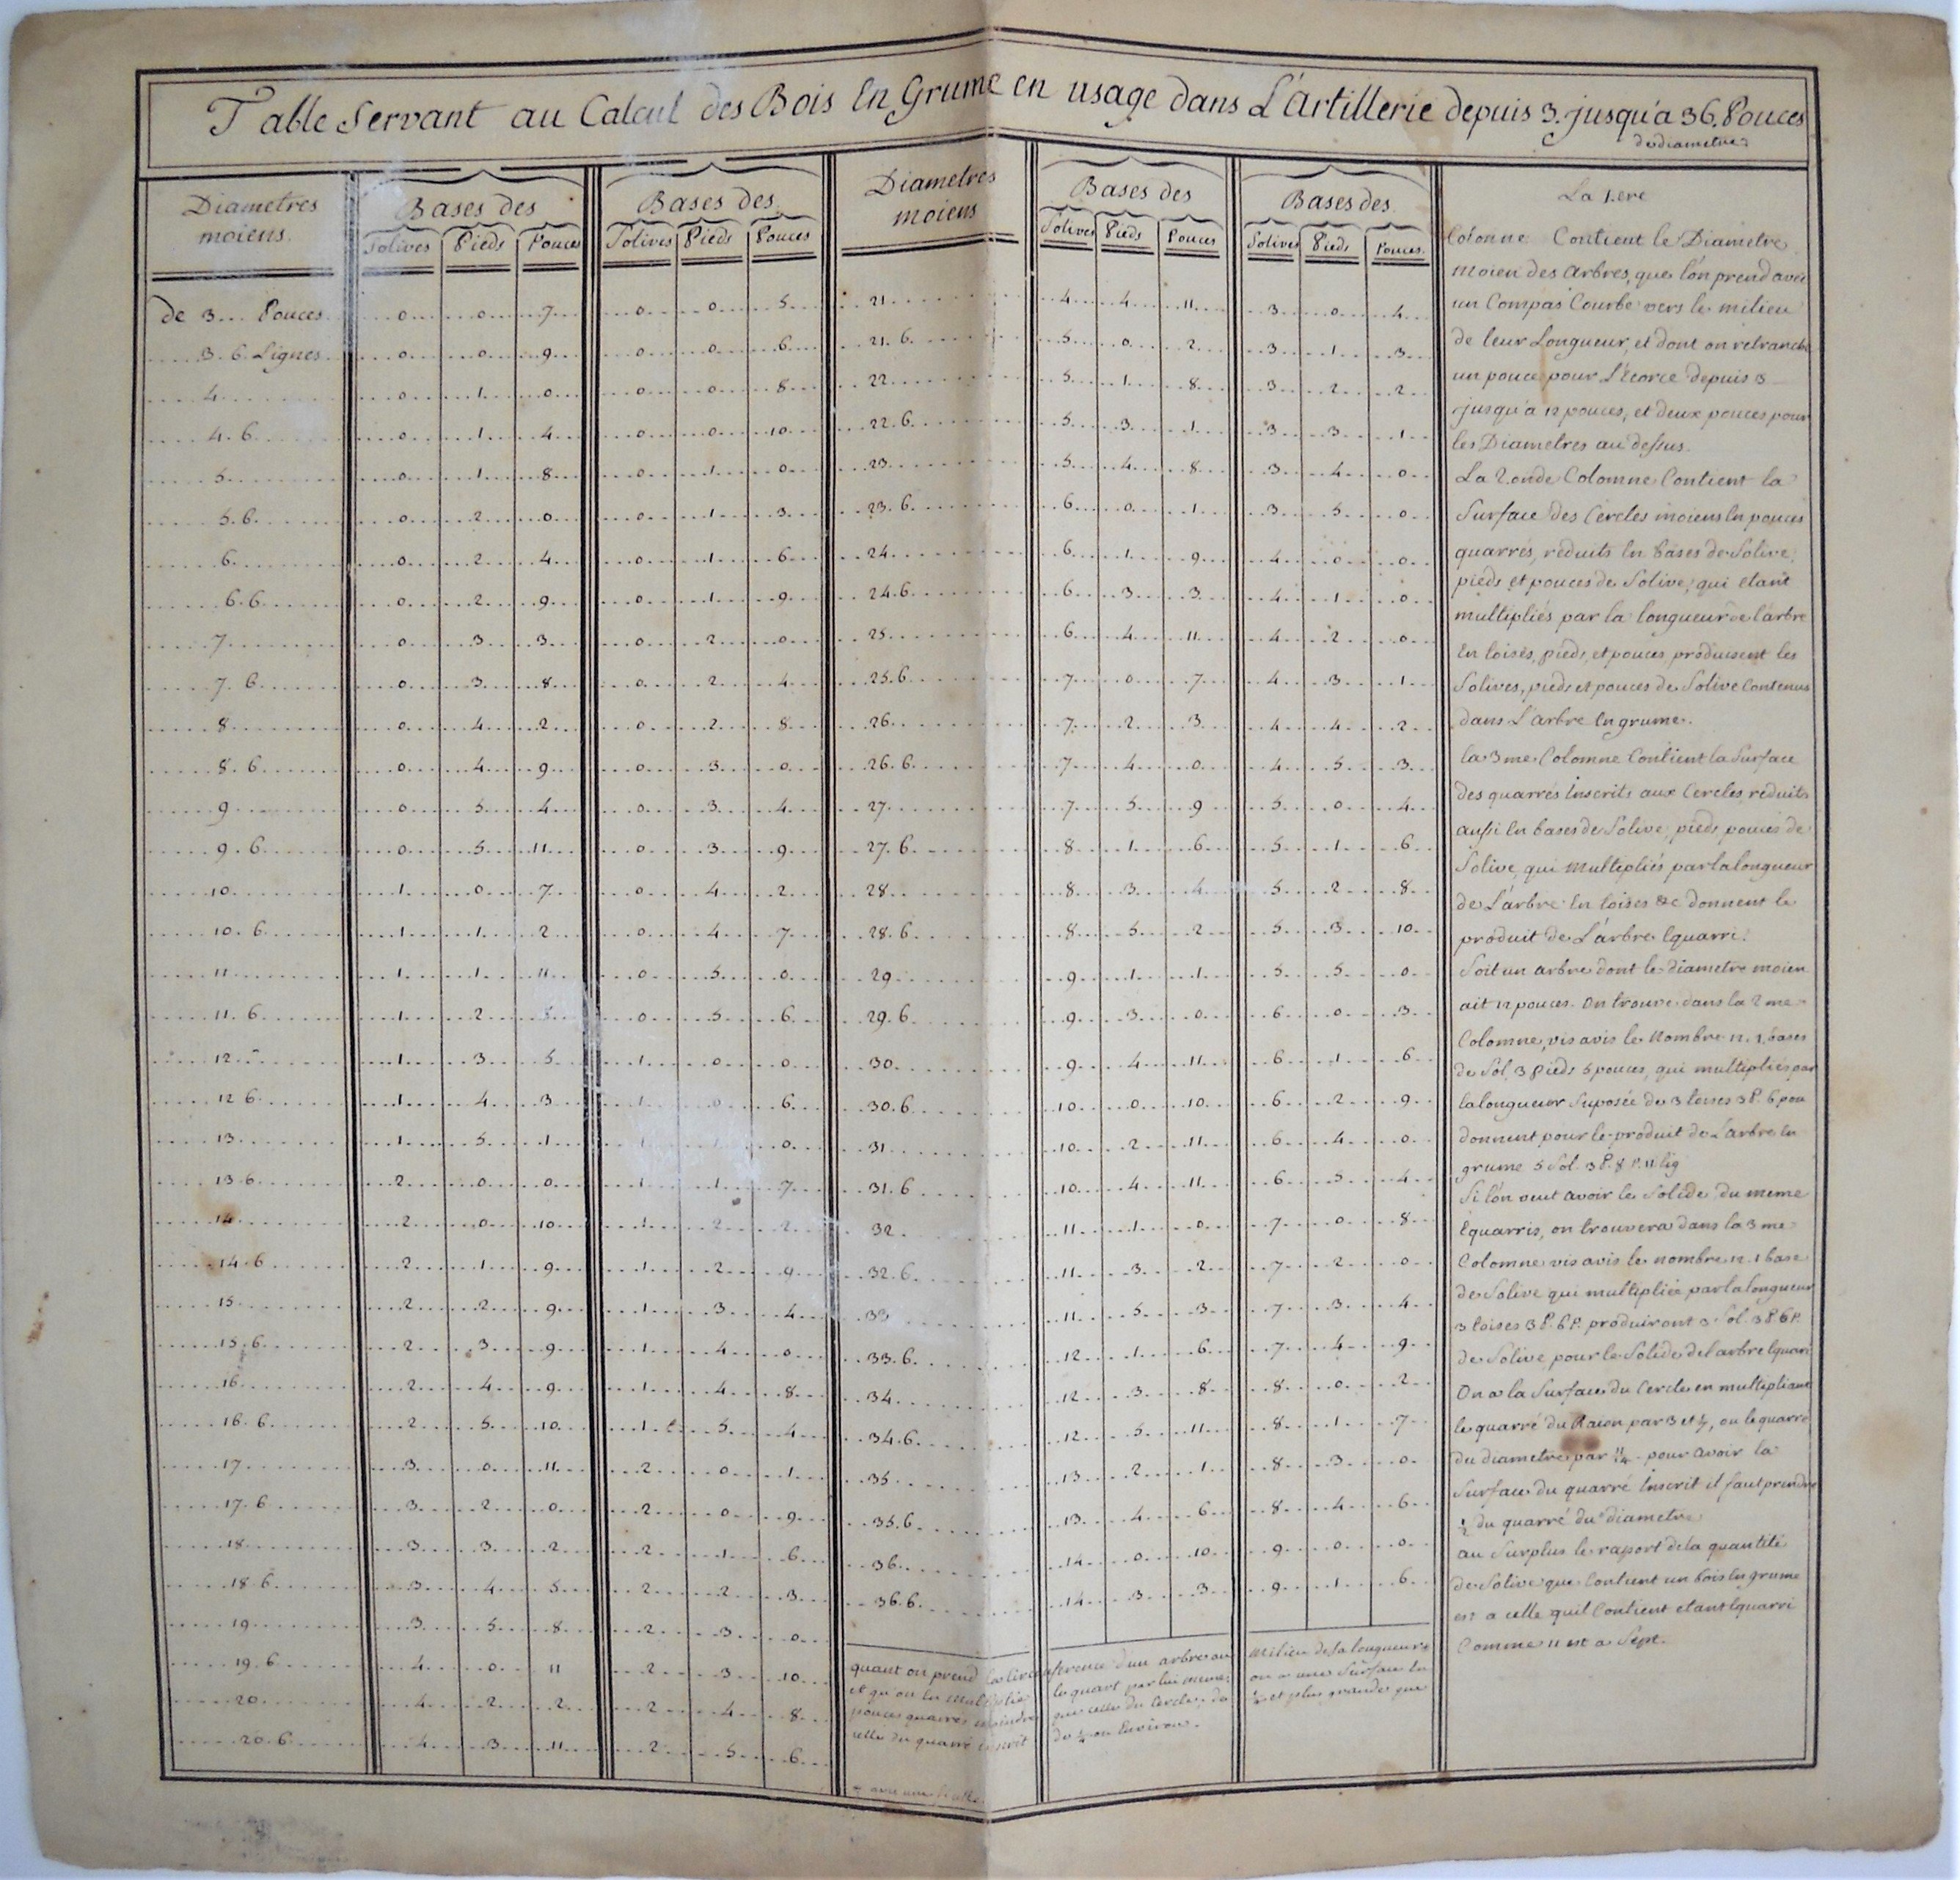 Table Servant au Calcul des Bois En Grume en usage dans L'Artillerie depuis 3. jusqu'a 36. Pouces
de diametre
Diametres moiens. | Bases des | Bases des
Solives | Pieds | Pouces | Solives | Pieds | Pouces
de 3... Pouces | 0 | 0 | 7 | 0 | 0 | 5
3. 6. Lignes | 0 | 0 | 9 | 0 | 0 | 6
4 | 0 | 1 | 0 | 0 | 0 | 8
4. 6 | 0 | 1 | 4 | 0 | 0 | 10
5 | 0 | 1 | 8 | 0 | 1 | 0
5. 6 | 0 | 2 | 0 | 0 | 1 | 3
6 | 0 | 2 | 4 | 0 | 1 | 6
6. 6 | 0 | 2 | 9 | 0 | 1 | 9
7 | 0 | 3 | 3 | 0 | 2 | 0
7. 6 | 0 | 3 | 8 | 0 | 2 | 4
8 | 0 | 4 | 2 | 0 | 2 | 8
8. 6 | 0 | 4 | 9 | 0 | 3 | 0
9 | 0 | 5 | 4 | 0 | 3 | 4
9. 6 | 0 | 5 | 11 | 0 | 3 | 9
10 | 1 | 0 | 7 | 0 | 4 | 2
10. 6 | 1 | 1 | 2 | 0 | 4 | 7
11 | 1 | 1 | 11 | 0 | 5 | 0
11. 6 | 1 | 2 | | 0 | 5 | 6
12 | 1 | 3 | 5 | 1 | 0 | 0
12 6 | 1 | 4 | 3 | 1 | 0 | 6
13 | 1 | 5 | 1 | 1 | 1 | 0
13 6 | 2 | 0 | 0 | 1 | 1 | 7
14 | 2 | 0 | 10 | 1 | 2 | 2
14. 6 | 2 | 1 | 9 | 1 | 2 | 9
15 | 2 | 2 | 9 | 1 | 3 | 4
15. 6 | 2 | 3 | 9 | 1 | 4 | 0
16 | 2 | 4 | 9 | 1 | 4 | 8
16. 6 | 2 | 5 | 10 | 1 | 5 | 4
17 | 3 | 0 | 11 | 2 | 0 | 1
17. 6 | 3 | 2 | 0 | 2 | 0 | 9
18 | 3 | 3 | 2 | 2 | 1 | 6
18 6 | 3 | 4 | 5 | 2 | 2 | 3
19 | 3 | 5 | 8 | 2 | 3 | 0
19. 6 | 4 | 0 | 11 | 2 | 3 | 10
20 | 4 | 2 | 2 | 2 | 4 | 8
20. 6 | 4 | 3 | 11 | 2 | 5 | 6
Diametres moiens | Bases des | Bases des
Solives | Pieds | Pouces | Solives | Pieds | Pouces
21 | 4 | 4 | 11 | 3 | 0 | 4
21. 6 | 5 | 0 | 2 | 3 | 1 | 3
22 | 5 | 1 | 8 | 3 | 2 | 2
22. 6 | 5 | 3 | 1 | 3 | 3 | 1
23 | 5 | 4 | 8 | 3 | 4 | 0
23. 6 | 6 | 0 | 1 | 3 | 5 | 0
24 | 6 | 1 | 9 | 4 | 0 | 0
24. 6 | 6 | 3 | 3 | 4 | 1 | 0
25 | 6 | 4 | 11 | 4 | 2 | 0
25. 6 | 7 | 0 | 7 | 4 | 3 | 1
26 | 7 | 2 | 3 | 4 | 4 | 2
26. 6 | 7 | 4 | 0 | 4 | 5 | 3
27 | 7 | 5 | 9 | 5 | 0 | 4
27. 6 | 8 | 1 | 6 | 5 | 1 | 6
28 | 8 | 3 | 4 | 5 | 2 | 8
28. 6 | 8 | 5 | 2 | 5 | 3 | 10
29 | 9 | 1 | 1 | 5 | 5 | 0
29. 6 | 9 | 3 | 0 | 6 | 0 | 3
30 | 9 | 4 | 11 | 6 | 1 | 6
30. 6 | 10 | 0 | 10 | 6 | 2 | 9
31 | 10 | 2 | 11 | 6 | 4 | 0
31. 6 | 10 | 4 | 11 | 6 | 5 | 4
32 | 11 | 1 | 0 | 7 | 0 | 8
32. 6 | 11 | 3 | 2 | 7 | 2 | 0
33 | 11 | 5 | 3 | 7 | 3 | 4
33. 6 | 12 | 1 | 6 | 7 | 4 | 9
34 | 12 | 3 | 8 | 8 | 0 | 2
34. 6 | 12 | 5 | 11 | 8 | 1 | 7
35 | 13 | 2 | 1 | 8 | 3 | 0
35. 6 | 13 | 4 | 6 | 8 | 4 | 6
36 | 14 | 0 | 10 | 9 | 0 | 0
36. 6 | 14 | 3 | 3 | 9 | 1 | 6
quant on prend la circonference d'un arbre au milieu de sa longueur
et qu'on en multiplie le quart par lui meme on a une surface en
pouces quarrés moindre que celle du Cercle de et plus grande que
celle du quarré inscrit de 1/4 ou Environ.
La 1.ere
Colonne Contient le Diametre
moien des Arbres, que l'on prend avec
un Compas Courbe vers le milieu
de leur Longueur, et dont on retranche
un pouce pour L'Ecorce depuis 3
jusqu'a 12 pouces, et deux pouces pour
les Diametres au dessus.
La 2.onde Colomne Contient la
Surface des Cercles moiens En pouces
quarrés, reduits En bases de Solive,
pieds et pouces de Solive, qui etant
multipliés par la longueur de l'arbre
En toises, pieds, et pouces, produisent les
Solives, pieds et pouces de Solive Contenus
dans L'arbre En grume.
la 3me Colomne Contient la Surface
des quarrés Inscrits aux Cercles, reduits
aussi En bases de Solive, pieds, pouces de
Solive, qui Multipliés par la longueur
de L'arbre En toises &c donnent le
produit de L'arbre Equarri.
Soit un arbre dont le diametre moien
ait 12 pouces. On trouve dans la 2me
Colomne, vis avis le Nombre 12. 1. bases
de Sol. 3 Pieds 5 pouces, qui multipliés par
la longueur Suposée de 3 toises 3 P. 6 pou
donnent pour le produit de L'arbre En
grume 5 Sol. 3 P. 8 P. 11 lig
Si l'on veut avoir le Solide Du meme
Equarris, on trouvera dans la 3me
Colomne vis avis le nombre 12. 1 base
de Solive qui multipliée par la longueur
3 toises 3 P. 6 P. produiront 3. Sol. 3 P. 6 P.
de Solive pour le Solide del arbre Equari
On a la Surface du Cercle en multipliant
le quarré du Raion par 3 et 1/7, ou le quarré
du diametre par 11/14. pour avoir la
Surface du quarré Inscrit il faut prendre
1/2 du quarré du diametre
au Surplus le raport de la quantité
de Solive que Contient un bois En grume
est a celle quil Contient etant Equarri
Comme 11 est a Sept.